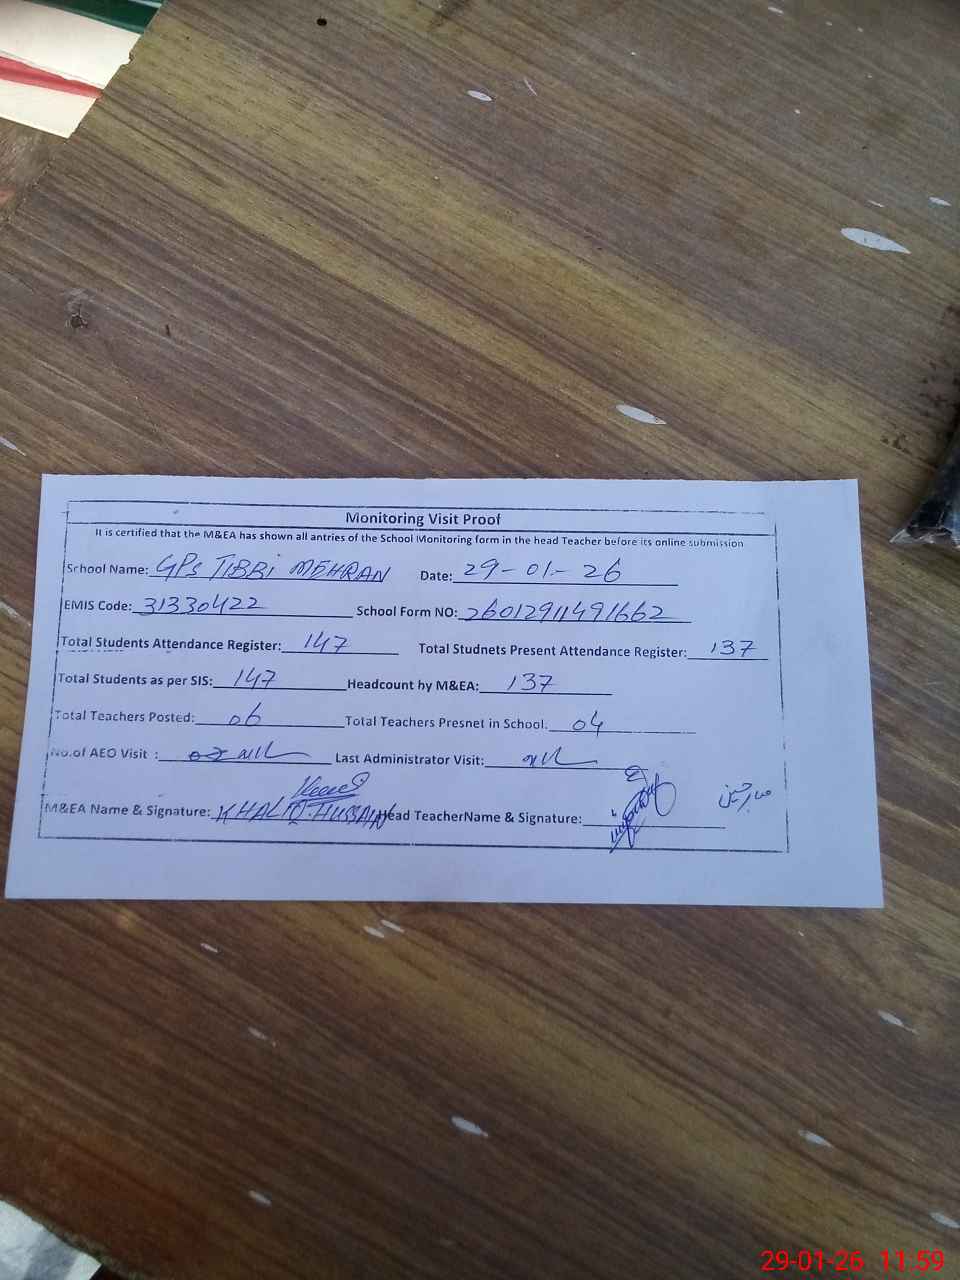 Monitoring Visit Proof
It is certified that the M&EA has shown all antries of the School Monitoring form in the head Teacher before its online submission
School Name: GPS TIBBI MEHRAN Date: 29-01-26
EMIS Code: 31330422 School Form NO: 26012911491662
Total Students Attendance Register: 147 Total Studnets Present Attendance Register: 137
Total Students as per SIS: 147 Headcount by M&EA: 137
Total Teachers Posted: 06 Total Teachers Presnet in School. 04
No.of AEO Visit : Nil Last Administrator Visit: Nil
M&EA Name & Signature: KHALIQ HUSSAIN Head TeacherName & Signature:
29-01-26 11:59